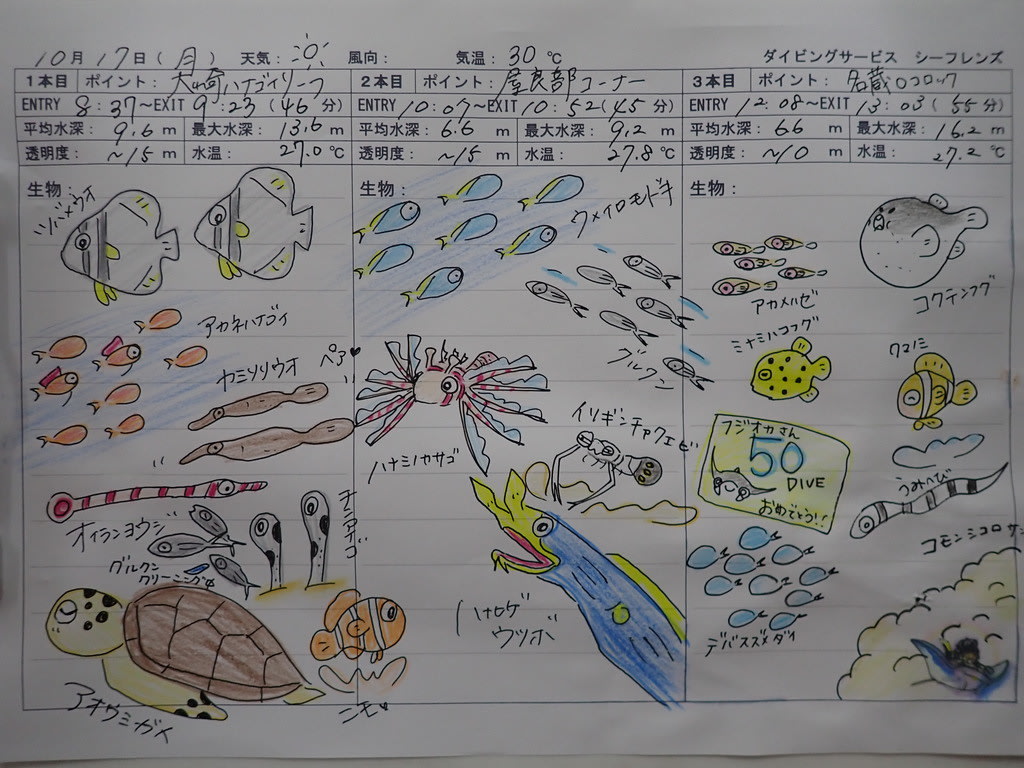 10月17日(月) 天気: 風向: 気温: 30℃ ダイビングサービス シーフレンズ
1本目 ポイント: 大崎ハナゴイリーフ 2本目 ポイント: 屋良部コーナー 3本目 ポイント: 名蔵ロロロック
ENTRY 8:37~EXIT 9:23(46分) ENTRY 10:07~EXIT 10:52(45分) ENTRY 12:08~EXIT 13:03(55分)
平均水深: 9.6m 最大水深: 13.6m 平均水深: 6.6m 最大水深: 9.2m 平均水深: 6.6m 最大水深: 16.2m
透明度: ~15m 水温: 27.0℃ 透明度: ~15m 水温: 27.8℃ 透明度: ~10m 水温: 27.2℃
生物: 生物: 生物:
ツバメウオ
アカネハナゴイ
ペア♥
カミソリウオ
オイランヨウジ
チンアナゴ
グルクン
クリーニング中
アオウミガメ
ニモ♥
ウメイロモドキ
グルクン
ハナミノカサゴ
イソギンチャクエビ
ハナヒゲ
ウツボ
コクテンフグ
アカメハゼ
ミナミハコフグ
クマノミ
フジオカさん
50
DIVE
おめでとう!!
うみへび
デバスズメダイ
コモンシコロサンゴ